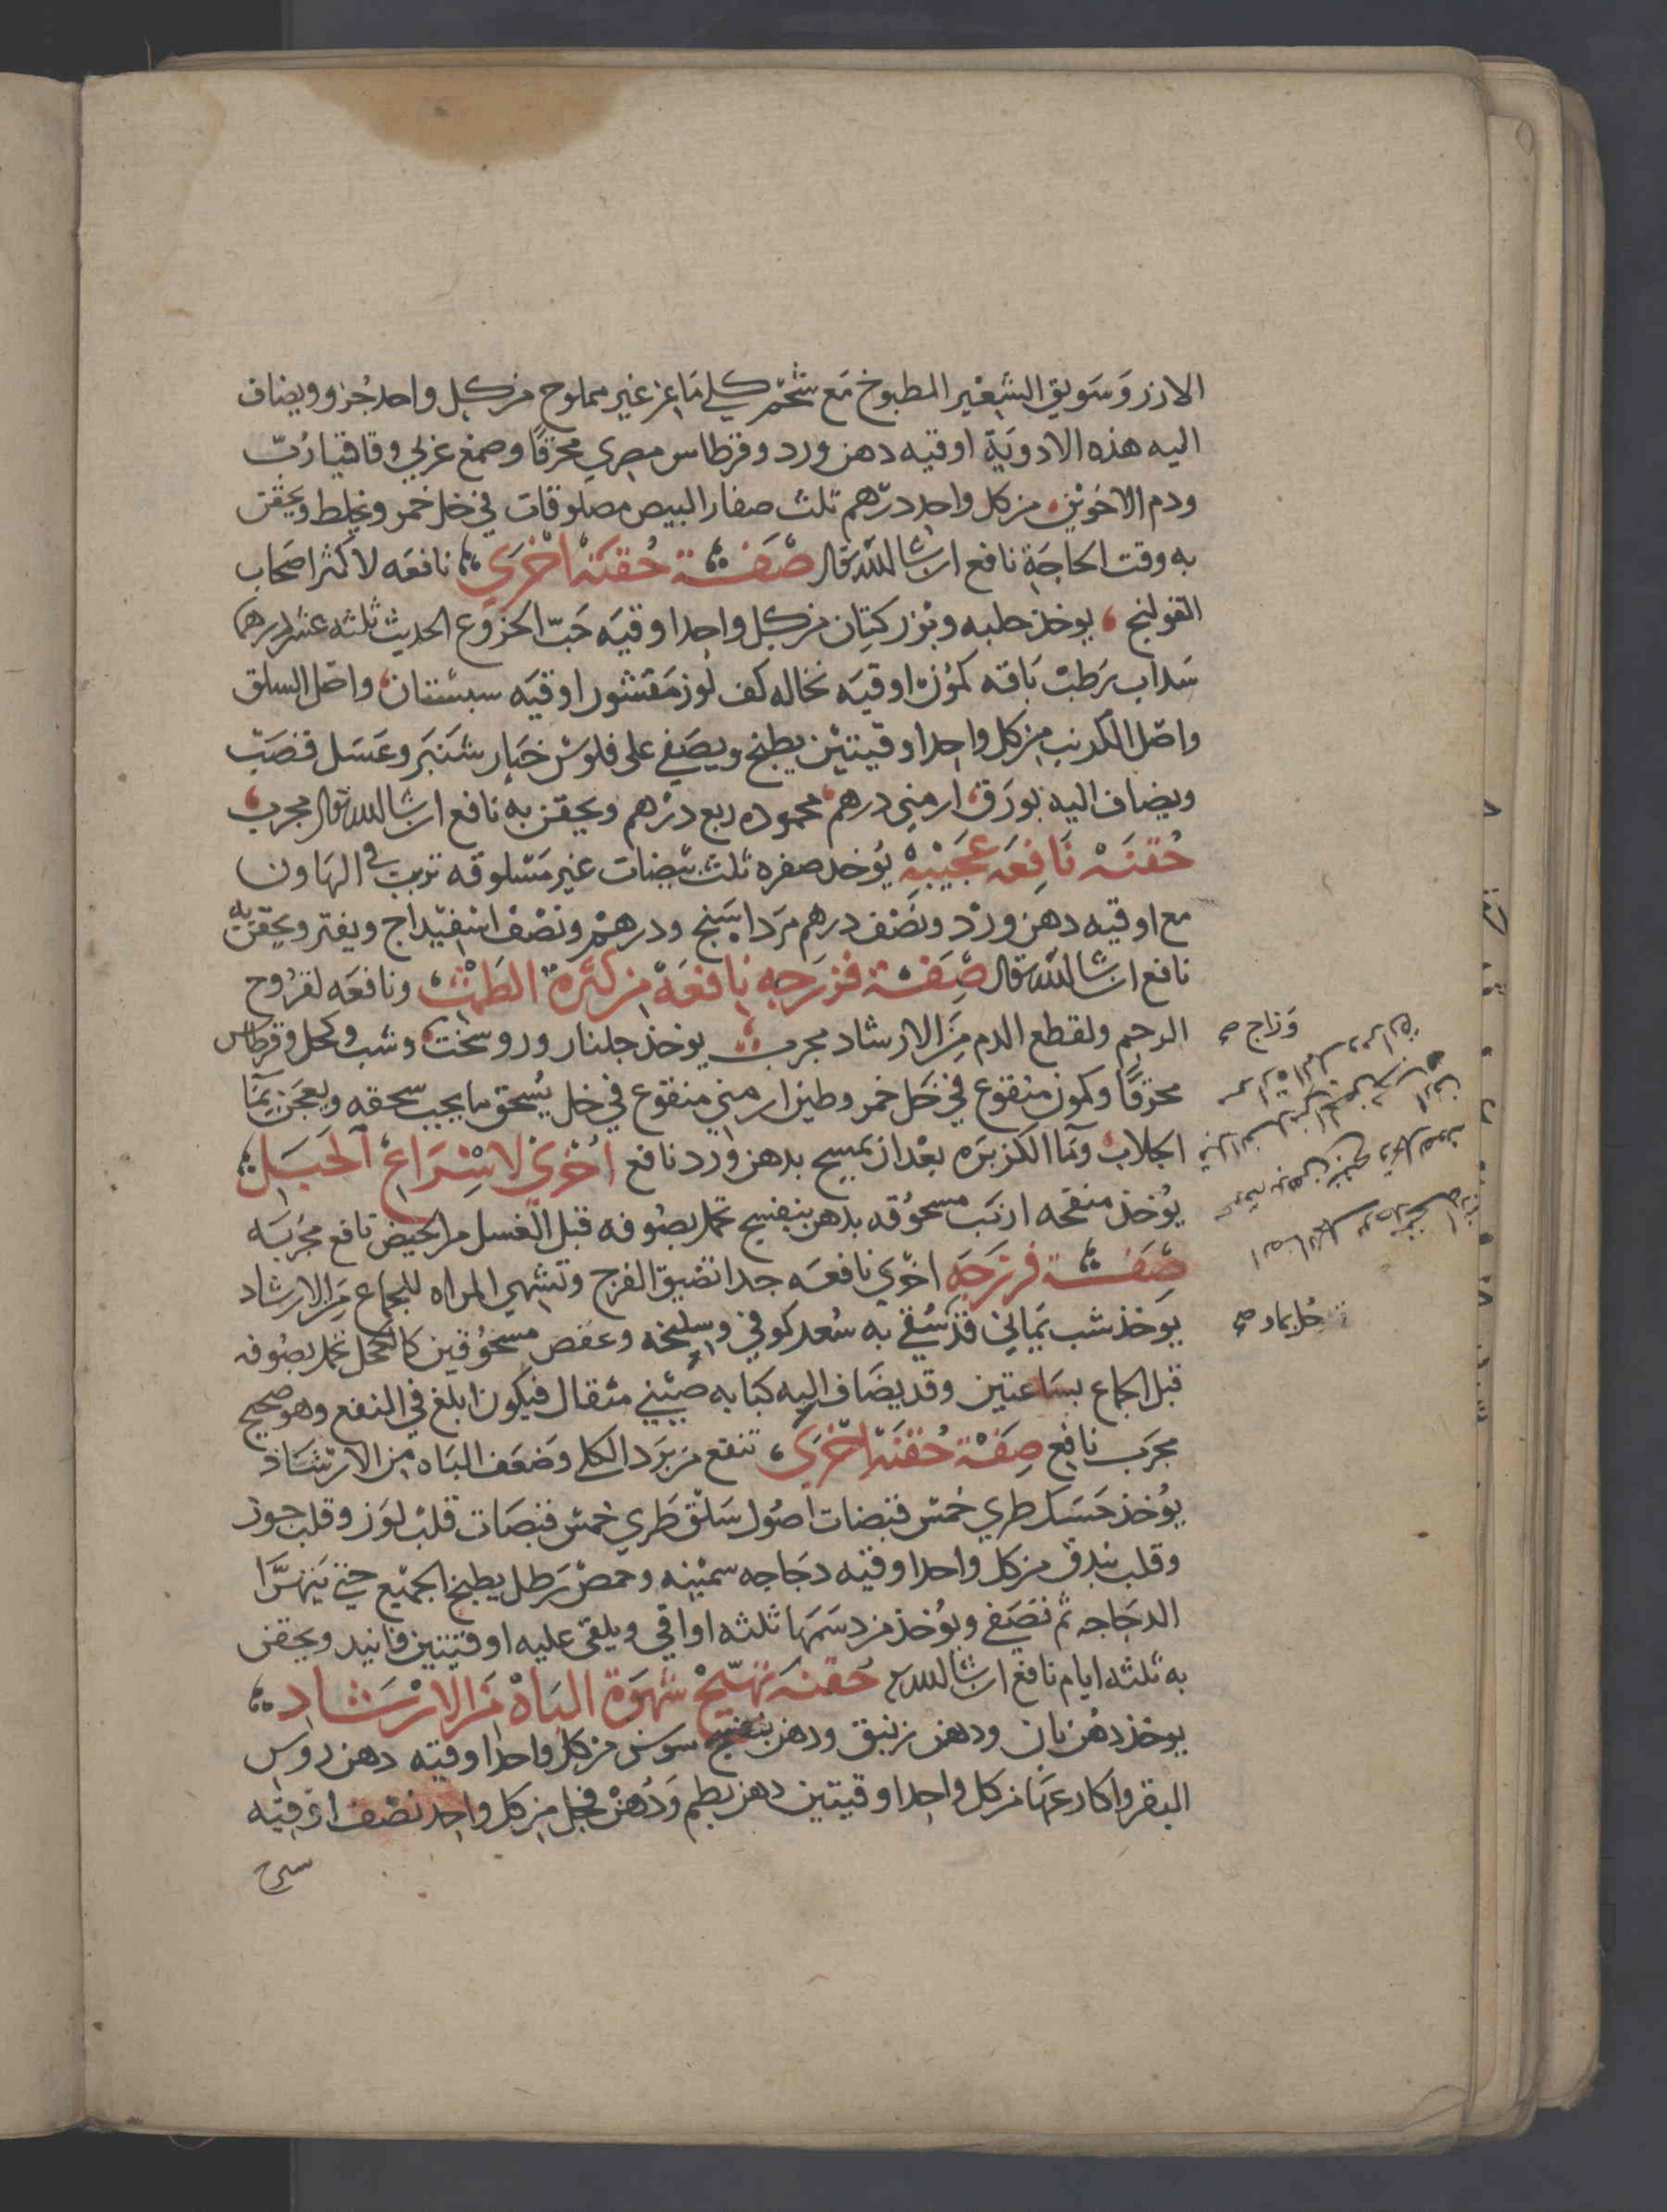 الارز وَسَويق الشعير المطبوخ مَع شحم كلي مَاعز غير مملوح من كل واحد جُزو ويضاف
اليه هذه الادويَة اوقيه دهن ورد وقرطاس مصري محرقًا وصمغ عربي وقاقيا رُبّ
ودم الاخوَين من كل واحد درهم ثلث صفار البيض مصلوقات في خل خمر ويخلط ويحقن
به وقت الحاجَة نافع ان شا الله تعالى صفَة حُقنَة اخرَي نافعَه لاكثر اصحاب
القولنج يوخذ حلبه وبزر كتِان من كل واحد اوقيَه حَبّ الخروع الحديث ثلثه عشر درهما
سَداب رَطبْ بَاقه كمّون اوقيَه نخاله كف لوز مَقشور اوقيَه سبستان واصل السلق
واصل الكرنب من كل واحد اوقيتين يطبخ ويصَفي على فلوسْ خيَار شَنبَر وعَسَل قصَب
ويضاف اليه بورَق ارمني درهم محموده ربع درهم ويحقن به نافع ان شا الله تعالى مجرب
حُقنَه نَافِعَه عجَيْبَهْ يُوخذ صفره ثلث بيضات غير مَسْلوقه تربب في الهَاون
مع اوقيه دهن وردْ ونصْف درهم مَرداسَنج ودرهم ونصْف اسفيْداج ويفتر ويحقن به
نافع ان شا الله تعالى صِفَة فرزَجه نافعَة من كثرة الطمْث ونافعَه لقرُوح
الرحِم ولقطع الدم مِن الارشاد مجرب يوخذ جلنار وروسختج وشب وكحل وقرطاس
وزاج صح
محرَقًا وكمون منقوع في خَل خمر وطين ارمني منقوع في خل يُسحق ما يجب سحقه ويعجَن بمَا
الجلاب ومَا الكزبَره بعْد ان تمسح بدهن ورد نافع اخْرَي لاسْرَاعْ الحَبَل
يُوخذ منفحه ارنَب مسحوُقه بدهن بنفسج تحمل بصُوفه قبل الغسل من الحيض نافع مجربَه
صِفَة فرزجَه اخرَي نافعَه جدا تضيق الفرج وتشهي المراه للجماع مِن الارشاد
يوَخذ شب يمَاني قد سُقي به سُعد كوفي وسليخه وعفص مسحُوقين كالكحل تحمل بصُوفه
حُل بماورد صح
قبل الجماع بسَاعتين وقد يضَاف اليه كبَابه صيْني مثقال فيكون ابلغ في النفع وهو صحيح
مجرَب نافع صِفَة حُقنَة اخرَي تنفع من بَرد الكلي وضعَف البَاه من الارشَاد
يوُخذ حَسَك طري خمسْ قبضات اصوُل سَلق طَري خمس قبضَات قلبْ لوَز وقلب جوز
وقلب بندق من كل واحد اوقيه دجَاجه سميْنه وحمصْ رَطل يطبخ الجميْع حتي يَتهرَّا
الدجَاجه ثم تصَفي ويوُخذ من دسَمَها ثلثه اواقي ويلقي عليه اوقيتين فانيد ويحقن
به ثلثه ايام نافع ان شا الله تع حقنَه تهيّجْ شهوَة البَاهْ مَن الارْشَاد
يوخذ دهُن بان ودهن زنبق ودهن بنفسج سوسن من كل واحد اوقيه دهن روس
البقر واكارعهَا من كل واحد اوقيتين دهن بطم وَدُهنْ فجل من كل واحد نصف اوقيَه